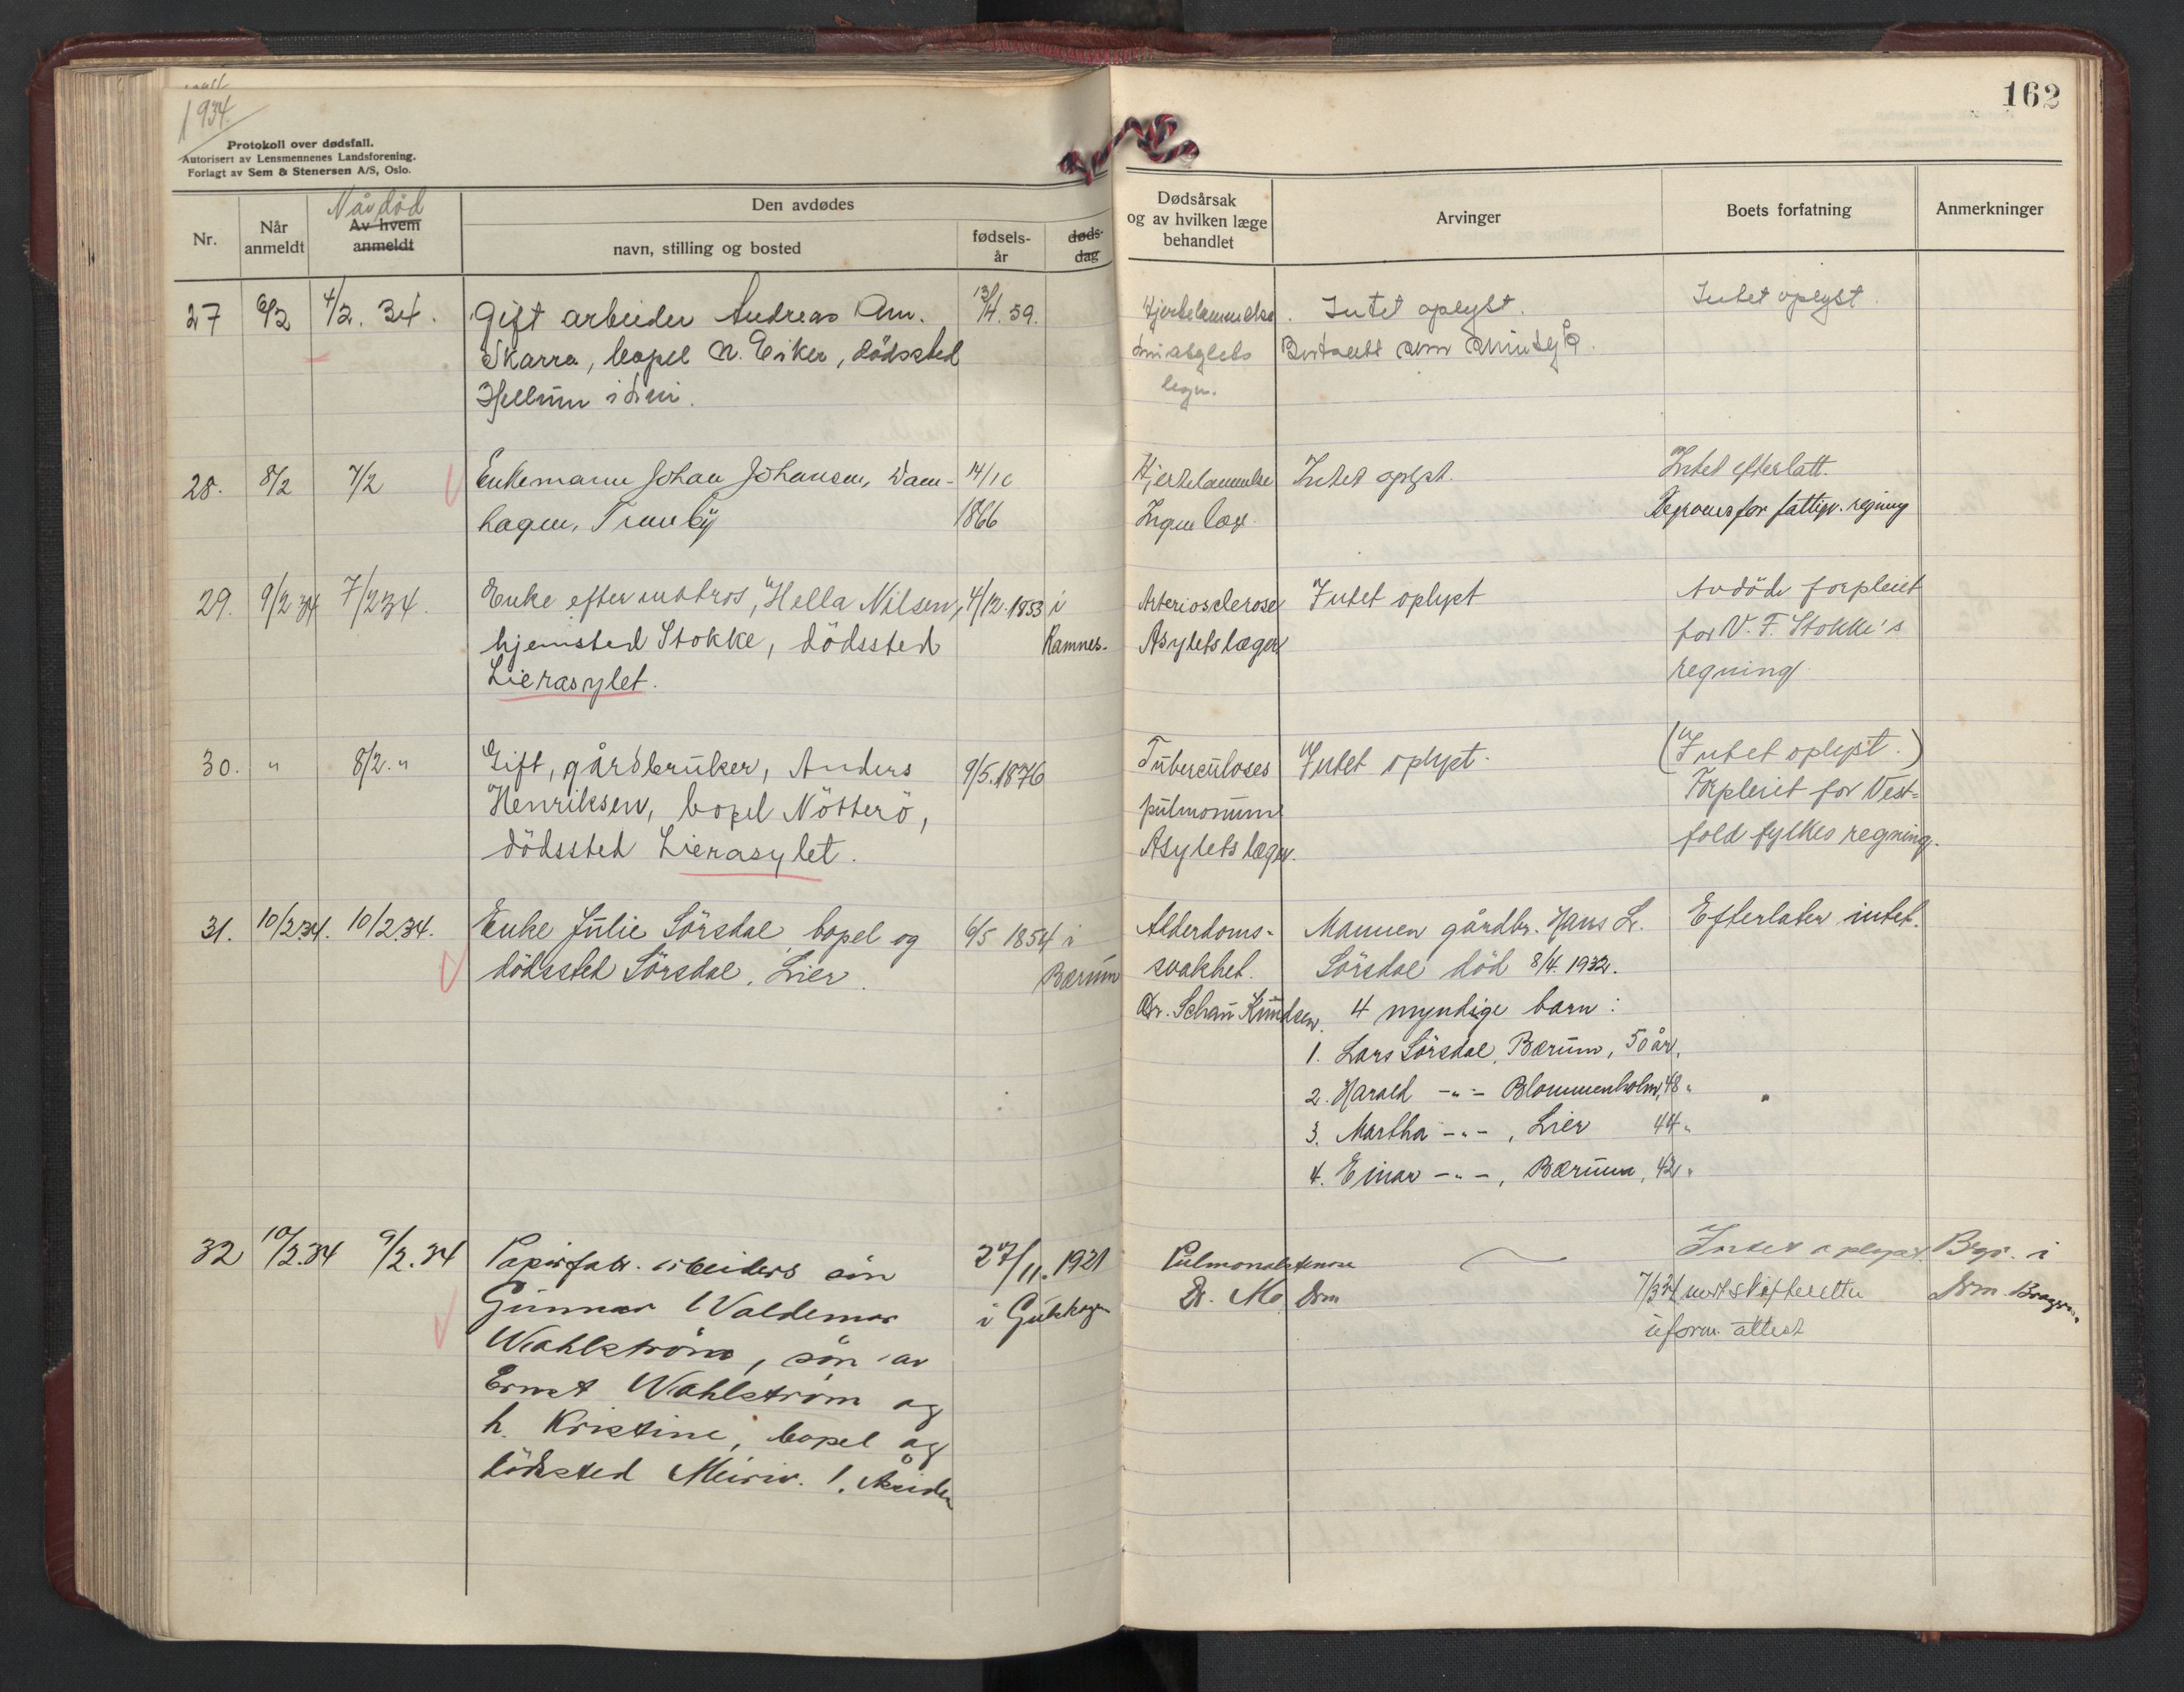 1934.
162
Protokoll over dødsfall.
Autorisert av Lensmennenes Landsforening.
Forlagt av Sem & Stenersen A/S, Oslo.
Nr.
Når anmeldt
Når död
Av hvem anmeldt
Den avdødes
navn, stilling og bosted
fødsels-år
døds-dag
Dødsårsak
og av hvilken læge
behandlet
Arvinger
Boets forfatning
Anmerkninger
27 6/2 4/2. 34. Gift arbeider Andreas Am. 13/4. 59. Hjertelammelse. Intet oplyst. Intet oplyst.
Skarra, bopel N. Eiker, dödssted
Hellum i Lier.
legn.
28. 8/2 7/2 Enkemann Johan Johansen, Dam- 14/10 Hjertelammelse Intet oplyst. Intet efterlatt.
hagen, Tranby 1866 Ingen læge. for fattigv. regning
29. 9/2 34 7/2 34. Enke efter matros, Hella Nilsen, 4/12. 1853 i Arteriosclerose Intet oplyst Avdöde forpleiet
hjemsted Stokke, dödssted Ramnes. Asylets læger for V. F. Stokke's
Lierasylet. regning.
30. " 8/2. " Gift, gårdbruker, Anders 9/5. 1876 Tuberculoses Intet oplyst. (Intet oplyst.)
Henriksen, bopel Nötterö, pulmonum Forpleiet for Vest=
dödssted Lierasylet. Asylets læger. fold fylkes regning.
31. 10/2 34. 10/2 34. Enke Julie Sörsdal, bopel og 6/5 1854 i Alderdoms- Mannen gårdbr. Hans L. Efterlater intet.
dödssted Sörsdal, Lier. Bærum svakhet. Sörsdal död 8/4. 1932.
Dr. Schau Knudsen. 4 myndige barn:
1. Lars Sörsdal, Bærum, 50 år,
2. Harald -"- Blommenholm, 48 "
3. Martha -"-, Lier 44 "
4. Einar -"-, Bærum, 42 "
32 10/2. 34 9/2. 34 Papirfabr. arbeiders sön 27/11. 1921 Pulmonalstenose Intet oplyst. Bgr. i
Gunnar Waldemar i Dr. Mo, Drm 7/3 34 skifteretten Drm.
Wahlström, sön av uform. attest
Ernst Wahlström og
h. Kristine, bopel og
dödssted